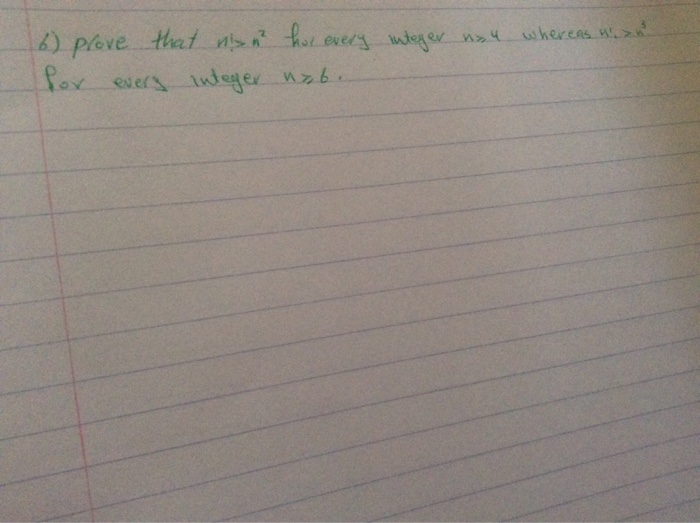 6) prove that n! > n² for every integer n ≥ 4 whereas n! > n³
for every integer n ≥ 6.